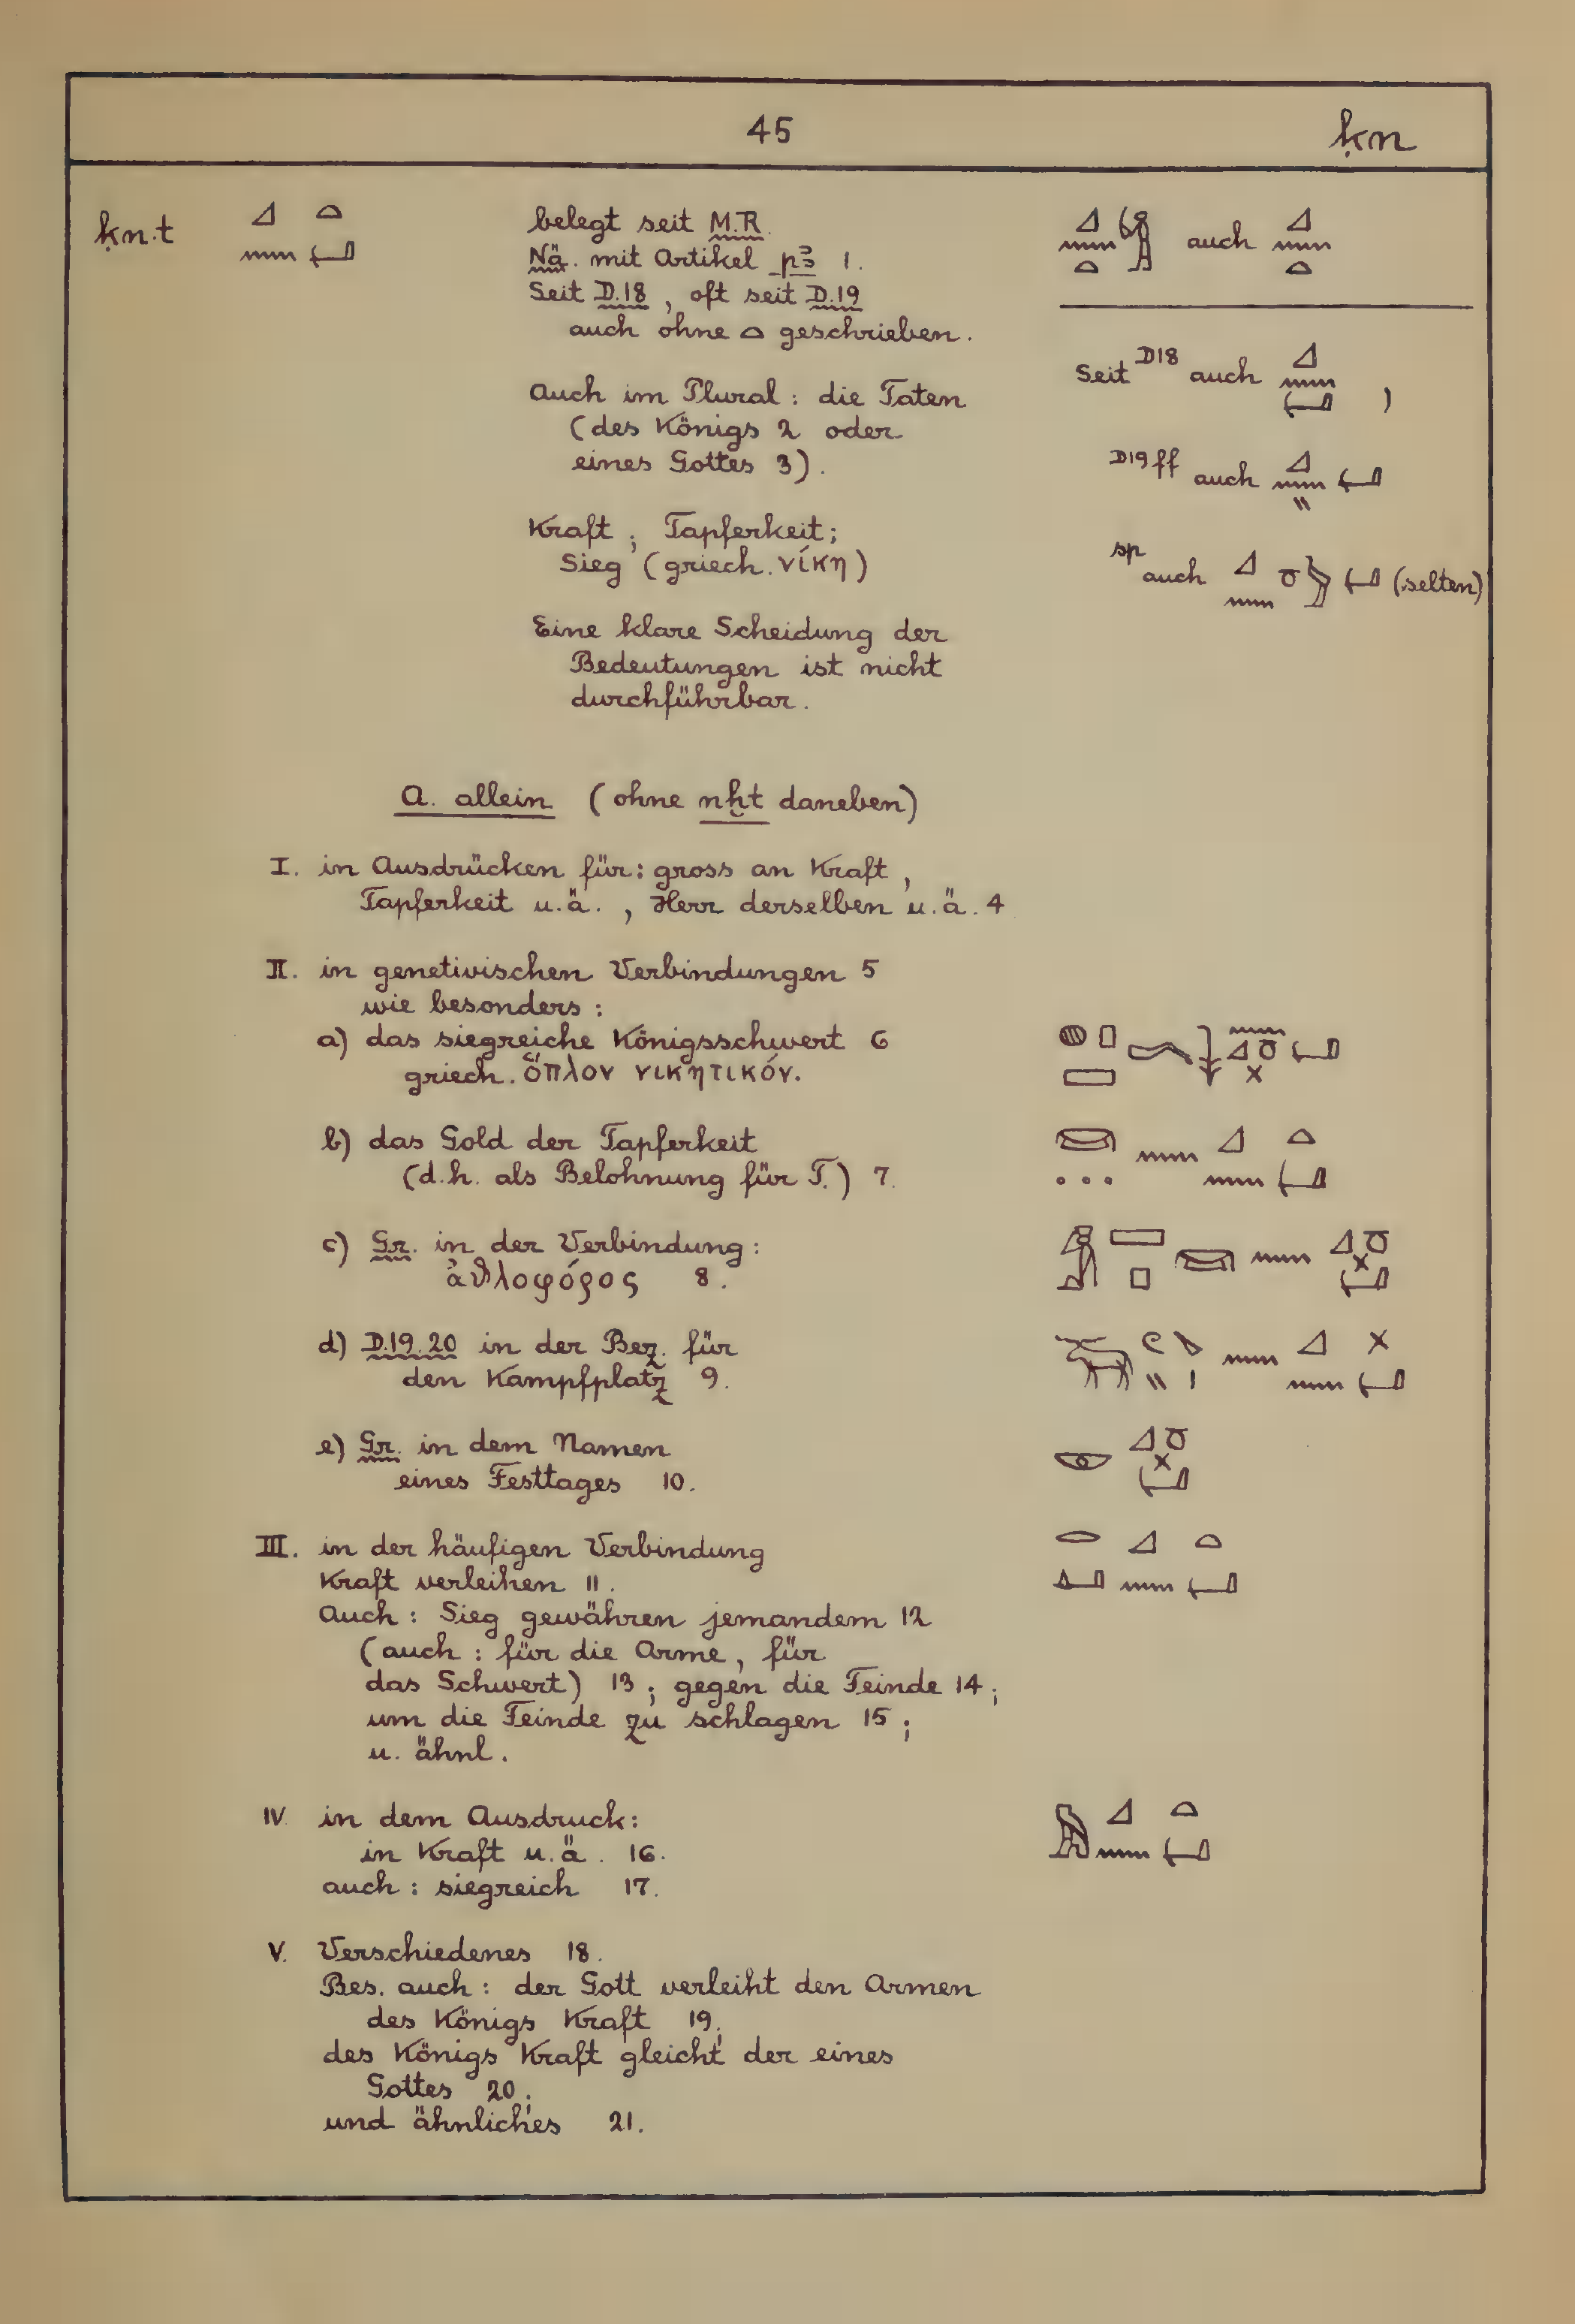 45
ḳn
ḳn.t
belegt seit M.R.
Nä. mit Artikel pꜣ 1.
Seit D.18, oft seit D.19
auch ohne 𓏏 geschrieben.
Auch im Plural: die Taten
(des Königs 2 oder
eines Gottes 3).
Kraft; Tapferkeit;
Sieg (griech. νίκη)
Eine klare Scheidung der
Bedeutungen ist nicht
durchführbar.
auch
Seit D18 auch ,
D19ff auch
sp auch (selten)
A. allein (ohne nḫt daneben)
I. in Ausdrücken für: gross an Kraft,
Tapferkeit u.ä., Herr derselben u.ä. 4
II. in genetivischen Verbindungen 5
wie besonders:
a) das siegreiche Königsschwert 6
griech. ὅπλον νικητικόν.
b) das Gold der Tapferkeit
(d.h. als Belohnung für T.) 7.
c) Gr. in der Verbindung:
ἀθλοφόρος 8.
d) D.19.20 in der Bez. für
den Kampfplatz 9.
e) Gr. in dem Namen
eines Festtages 10.
III. in der häufigen Verbindung
Kraft verleihen 11.
Auch: Sieg gewähren jemandem 12
(auch: für die Arme, für
das Schwert) 13; gegen die Feinde 14;
um die Feinde zu schlagen 15;
u. ähnl.
IV. in dem Ausdruck:
in Kraft u.ä. 16.
auch: siegreich 17.
V. Verschiedenes 18.
Bes. auch: der Gott verleiht den Armen
des Königs Kraft 19;
des Königs Kraft gleicht der eines
Gottes 20;
und ähnliches 21.